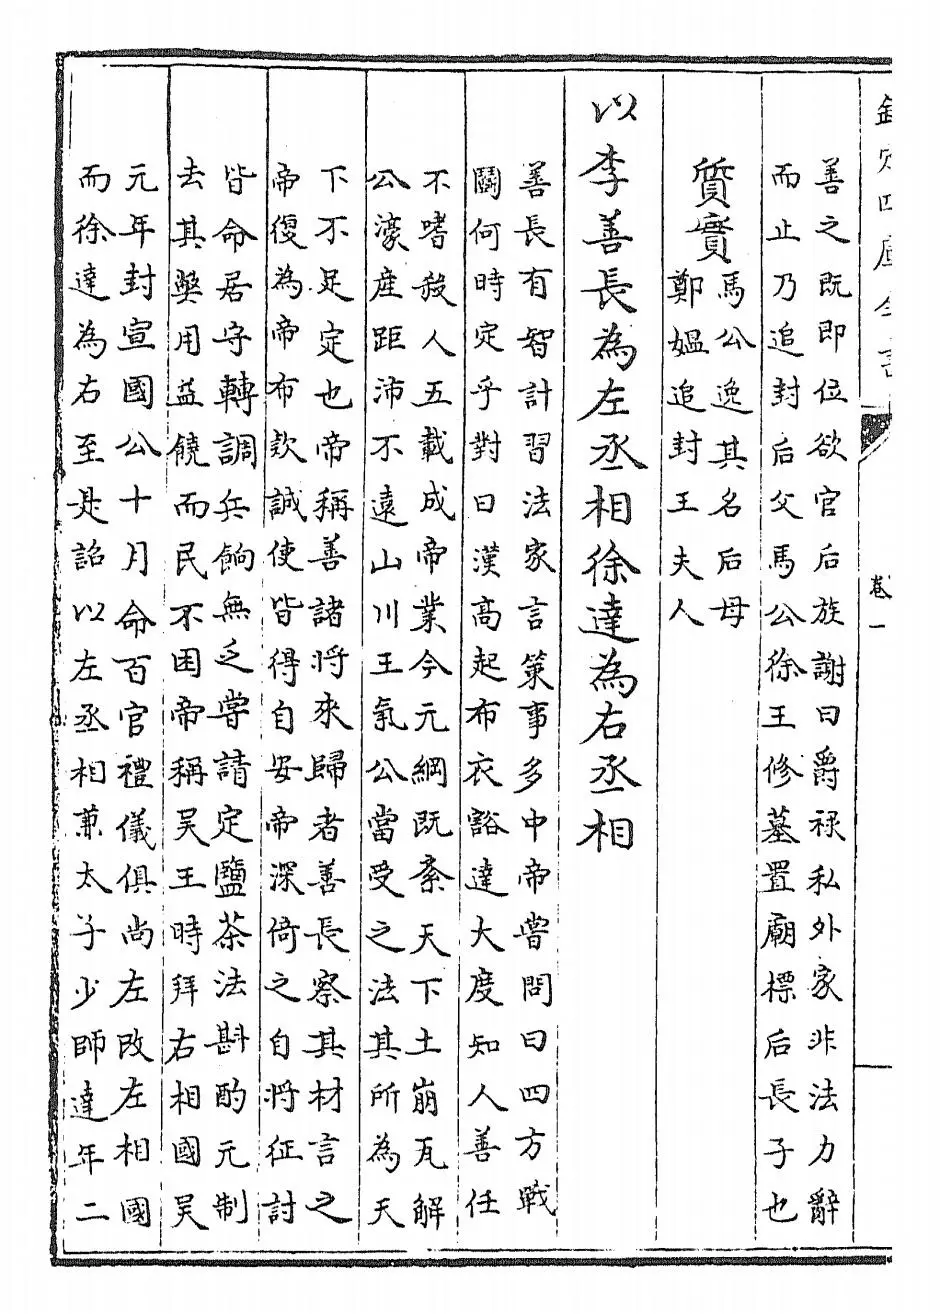 欽定四庫全書
卷一
善之既即位欲官后族謝曰爵祿私外家非法力辭
而止乃追封后父馬公徐王修墓置廟標后長子也
質實
馬公逸其名后母
鄭媼追封王夫人
以李善長為左丞相徐達為右丞相
善長有智計習法家言策事多中帝嘗問曰四方戰
鬭何時定乎對曰漢高起布衣豁達大度知人善任
不嗜殺人五載成帝業今元綱既紊天下土崩瓦解
公濠産距沛不遠山川王氣公當受之法其所為天
下不足定也帝稱善諸將來歸者善長察其材言之
帝復為帝布欵誠使皆得自安帝深倚之自將征討
皆命居守轉調兵餉無乏嘗請定鹽茶法斟酌元制
去其弊用益饒而民不困帝稱吳王時拜右相國吳
元年封宣國公十月命百官禮儀俱尚左改左相國
而徐達為右至是詔以左丞相兼太子少師達年二